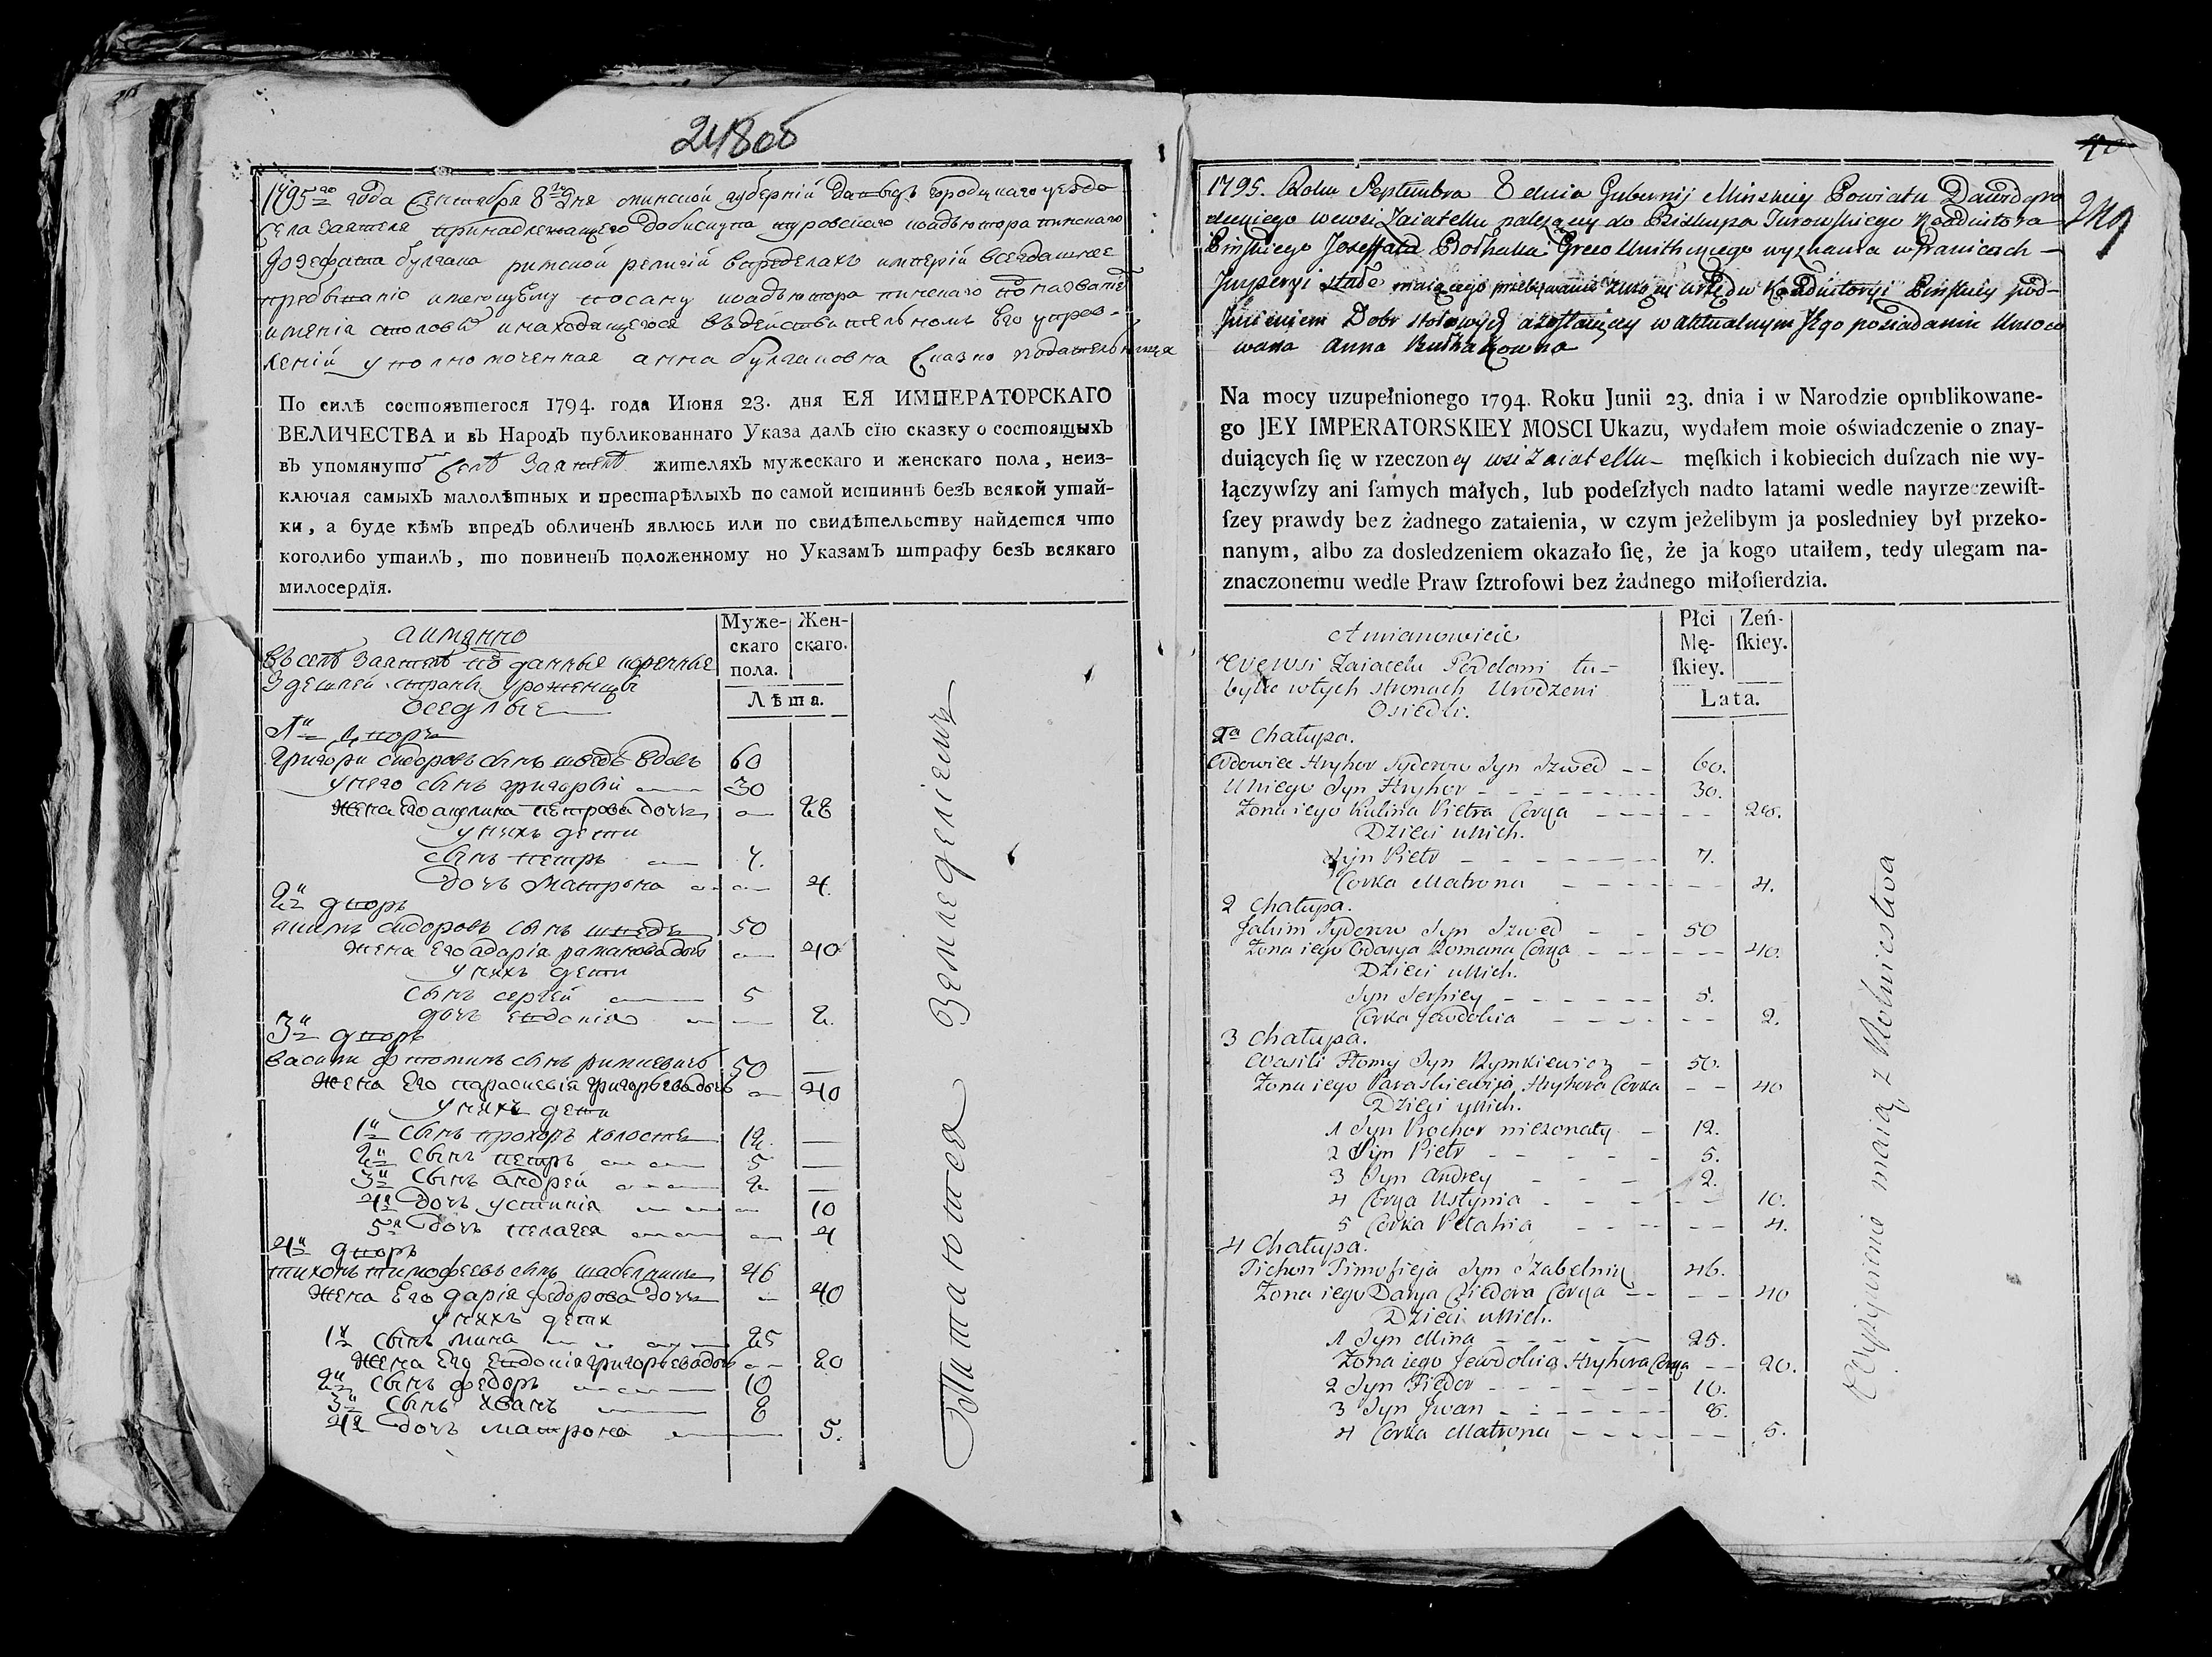 248об
1795го года Сентября 8го Дня минской губерний давыдъ городцкаго уезда
села заятеля принадлежащего до бискупа туровского коадъютора пинскаго
Иозефата булгака римской религий впределахъ империй всегдашнее
пребывание имеющему посану коадъютора пинскаго
имения столовы инаходящегося вдействительномъ Его управ-
лений уполномоченная анна булгаковна
По силѣ состоявшегося 1794. года Июня 23. дня ЕЯ ИМПЕРАТОРСКАГО
ВЕЛИЧЕСТВА и въ Народъ публикованнаго Указа далъ сїю сказку о состоящыхъ
въ упомянуто селѣ Заятелѣ жителяхъ мужескаго и женскаго пола, неиз-
ключая самыхъ малолѣтныхъ и престарѣлыхъ по самой истиннѣ безъ всякой утай-
ки, а буде кѣмъ впредъ обличенъ явлюсь или по свидѣтельству найдется что
коголибо утаилъ, то повиненъ положенному по Указамъ штрафу безъ всякаго
милосердїя.
Муже-
скаго
пола.
Жен-
скаго.
Лѣта.
аимянно
Въ селѣ Заятелѣ подданные коренные
здешней страны уроженцы
оседлые
1й Дворъ
григори сидоровъ сынъ шведъ вдовъ 60
унего сынъ григорый 30
жена его акулина петрова дочь 28
унихъ дети
сынъ петръ 7.
дочь Матрона 4.
2й дворъ
якимъ сидоровъ сынъ шведъ 50
жена Его адария раманова дочь 40
унихъ дети
сынъ сергей 5
дочь евдокия 2.
3й дворъ
васили фтоминъ сынъ римкевичъ 50
жена Его параскевия григорьева дочь 40
унихъ дети
1й сынъ прохоръ холостъ 12.
2й сынъ петръ 5
3й сынъ андрей 2
4я дочь устиния 10
5я дочь пелагея 4
4й дворъ
тихонъ тимофеевъ сынъ шабельникъ 46
жена Его дария федорова дочь 40
унихъ дети
1й сынъ мина 25
жена Его Евдокия григорьева дочь 20
2й сынъ федоръ 10
3й сынъ Иванъ 8
4я дочь матрона 5.
Питаются Земледелиемъ
40
249
1795. Roku Septembra 8 dnia Gubernij Minskiey Powiatu Dawidgro
dzkiego wewsi Zaiatellu należącey do Biskupa Turowskiego Koadiutora
Pinskiego Josaffata Bułhaka Greco Unithskiego wyznania w Granicach
Jmperyi stałe maiącego przebywanie Koadiutoryi Pinskiey pod-
Jmieniem Dobr stołowych azostaiącey w aktualnym Jego posiadaniu Umoco
wana Anna Bułhakowna
Na mocy uzupełnionego 1794. Roku Junii 23. dnia i w Narodzie opublikowane-
go JEY IMPERATORSKIEY MOSCI Ukazu, wydałem moie oświadczenie o znay-
duiących ſię w rzeczoney wsi Zaiatellu męſkich i kobiecich duſzach nie wy-
łączywſzy ani ſamych małych, lub podeſzłych nadto latami wedle nayrzeczewiſt-
ſzey prawdy bez żadnego zataienia, w czym jeżelibym ja posledniey był przeko-
nanym, albo za dosledzeniem okazało ſię, że ja kogo utaiłem, tedy ulegam na-
znaczonemu wedle Praw ſztrofowi bez żadnego miłoſierdzia.
Płci
Mę-
ſkiey.
Zeń-
ſkiey.
Lata.
A mianowicie
Wewsi Zaiacelu Poddani tu-
bylce wtych stronach Urodzeni
Osiedli.
1a Chałupa.
Wdowiec Hryhor Sydorow Syn Szwed 60.
Uniego Syn Hryhor 30.
Zona iego Kulina Pietra Corka 28.
Dzieci unich.
Syn Pietr 7.
Corka Matrona 4.
2 Chałupa.
Jakim Sydorow Syn Szwed 50
Zona iego Odarya Romana Corka 40.
Dzieci unich.
Syn Serhiey 5.
Corka Jewdokia 2.
3 Chałupa.
Wasili Ftomy Syn Rymkiewicz 50.
Zona iego Paraskiewija Hryhora Corka 40
Dzieci unich.
1 Syn Prochor niezonaty 12.
2 Syn Pietr 5.
3 Syn Andrey 2.
4 Corka Ustynia 10.
5 Corka Pełahia 4.
4 Chałupa.
Tichon Timofieja Syn Szabelnik 46.
Zona iego Darya Fiedora Corka 40
Dzieci unich.
1 Syn Mina 25.
Zona iego Jewdokia Hryhora Corka 20.
2 Syn Fiedor 10.
3 Syn Jwan 8.
4 Corka Matrona 5.
Wyżywienie maią z Rolnictwa